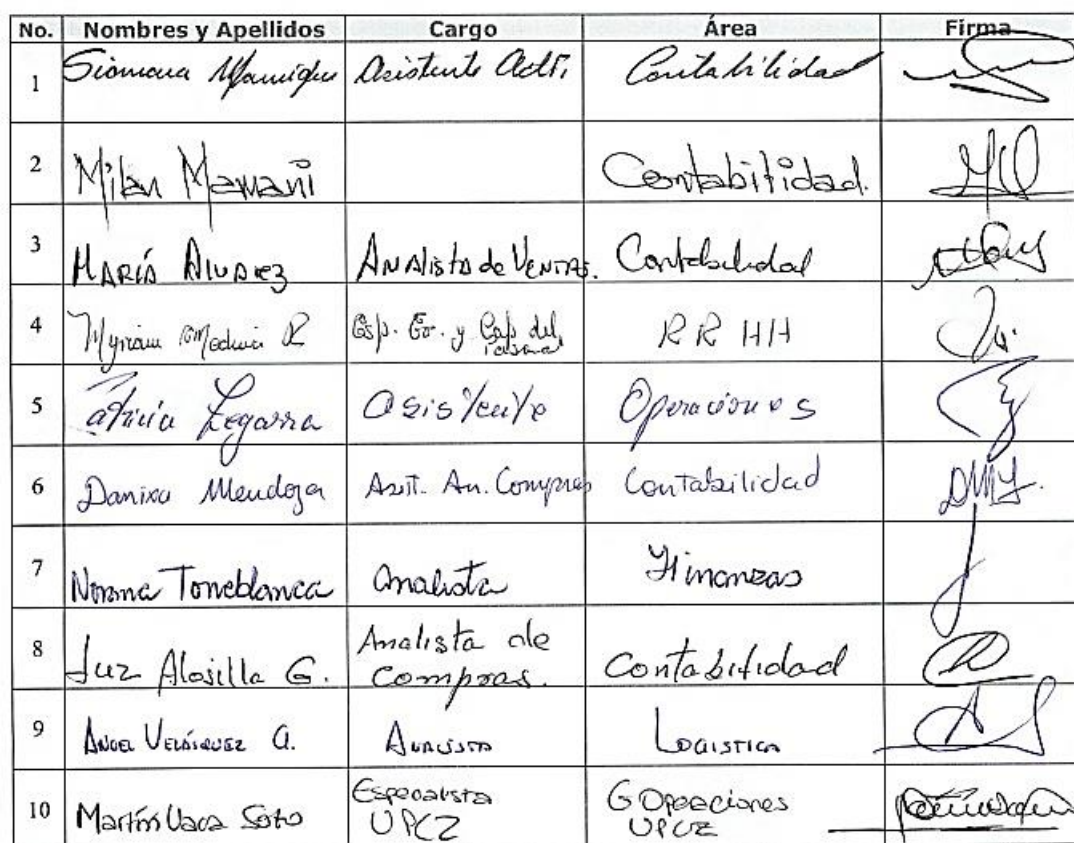 No. Nombres y Apellidos Cargo Área Firma
1 Siomara Manrique Asistente Contabilidad
2 Milan Mamani Contabilidad.
3 María Alvarez Analista de Ventas. Contabilidad
4 Myriam Medina R Esp. y Cap del Personal RR HH
5 Patricia Legarra Asistente Operaciones
6 Danixa Mendoza Asit. An. Compras Contabilidad DMY.
7 Norma Torreblanca Analista Finanzas
8 Luz Alosilla G. Analista de
Compras. Contabilidad
9 Angel Velásquez A. Analista Logistica
10 Martín Vaca Soto Especialista
UPCZ G Opeaciones
UPCZ